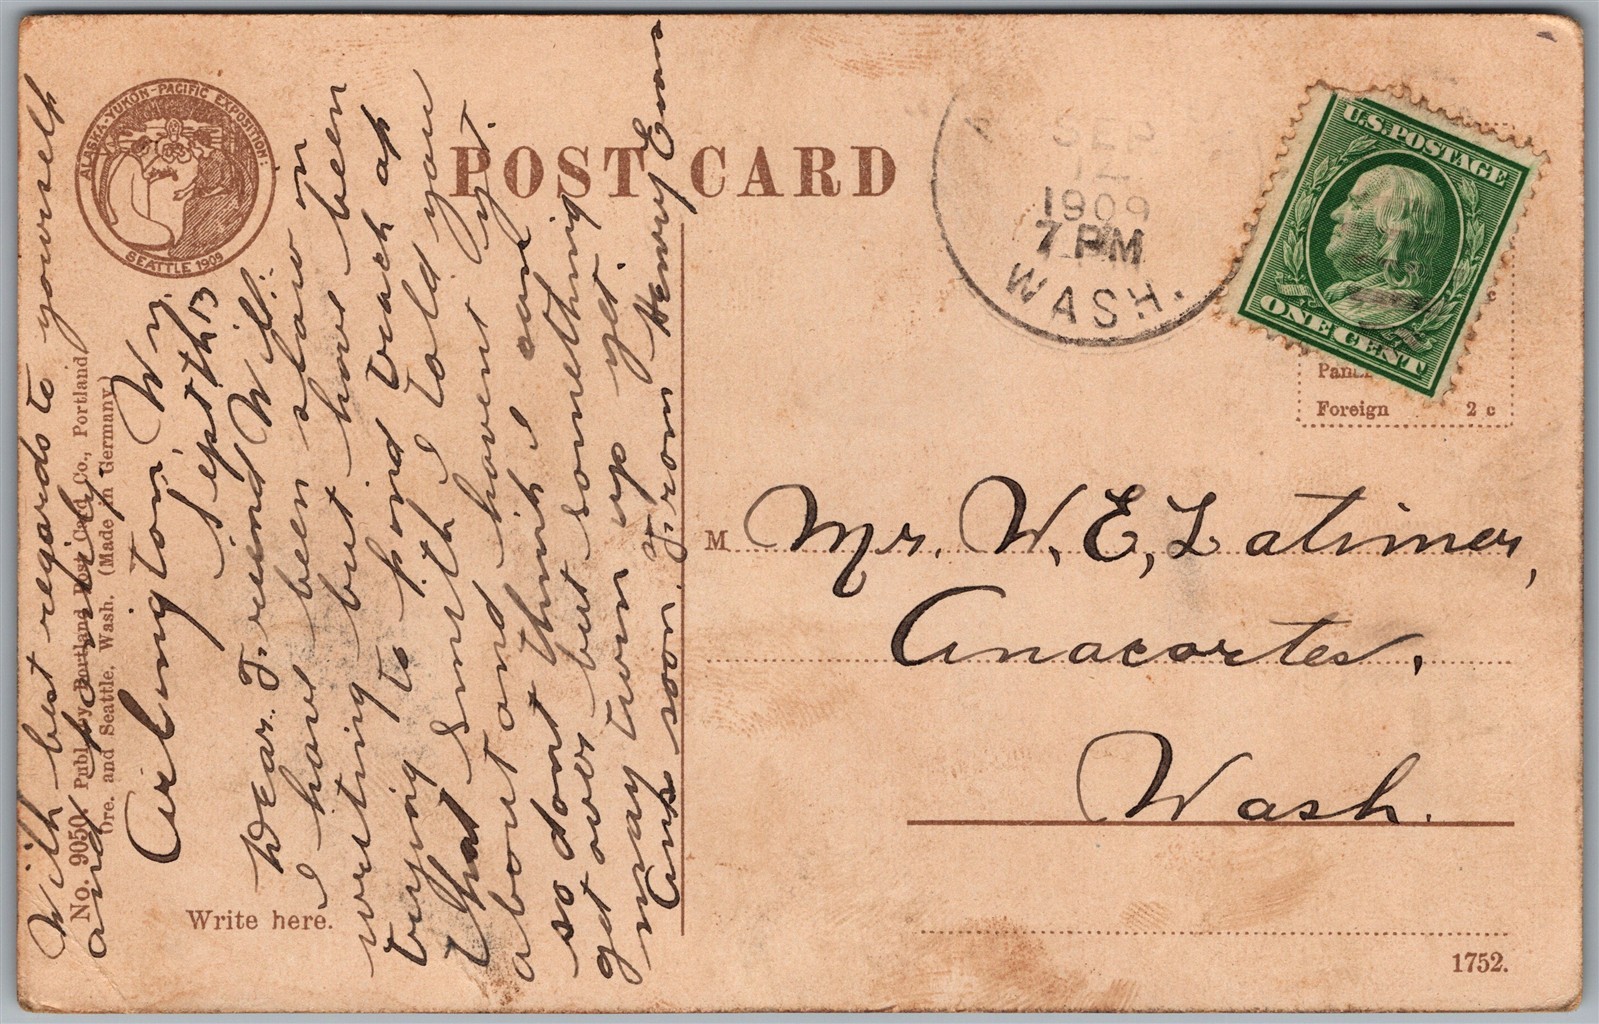 ALASKA-YUKON-PACIFIC EXPOSITION:
SEATTLE 1909
POST CARD
SEP
1909
7 PM
WASH.
U.S. POSTAGE
ONE CENT
Foreign 2 c
Arlington, Wn.
Sept th 13
Dear Friend Will:
I have been slow in
writing but have been
trying to hond track op
that Smith I told you
about and havent yet.
so dont think I am
get over but something
may turn up yet
Ans soon. From Henry Evans
With best regards to yourself
and family.
No. 9050. Publ. by Portland Post Card Co., Portland,
Ore. and Seattle, Wash. (Made in Germany.)
Write here.
M Mr. W. E, Latimer,
Anacortes,
Wash.
1752.